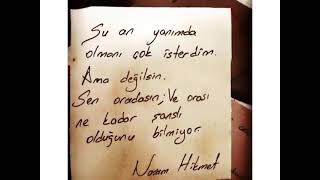 Şu an yanımda
olmanı çok isterdim.
Ama değilsin.
Sen oradasın; Ve orası
ne kadar şanslı
olduğunu bilmiyor
Nazım Hikmet